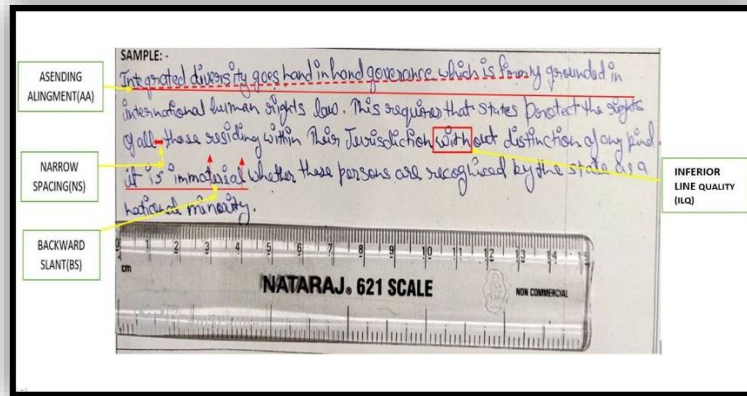 SAMPLE: -
ASENDING
ALINGMENT(AA)
Integrated diversity goes hand in hand goverance which is firmly grounded in
international human rights law. This requires that states protect the rights
of all those residing within Their Jurisdiction without distinction of any kind.
it is immaterial whether these persons are recoginized by the state as a
national minority.
NARROW
SPACING(NS)
BACKWARD
SLANT(BS)
INFERIOR
LINE QUALITY
(ILQ)
0 1 2 3 4 5 6 7 8 9 10 11 12 13 14 15
cm
NATARAJ® 621 SCALE
NON COMMERCIAL